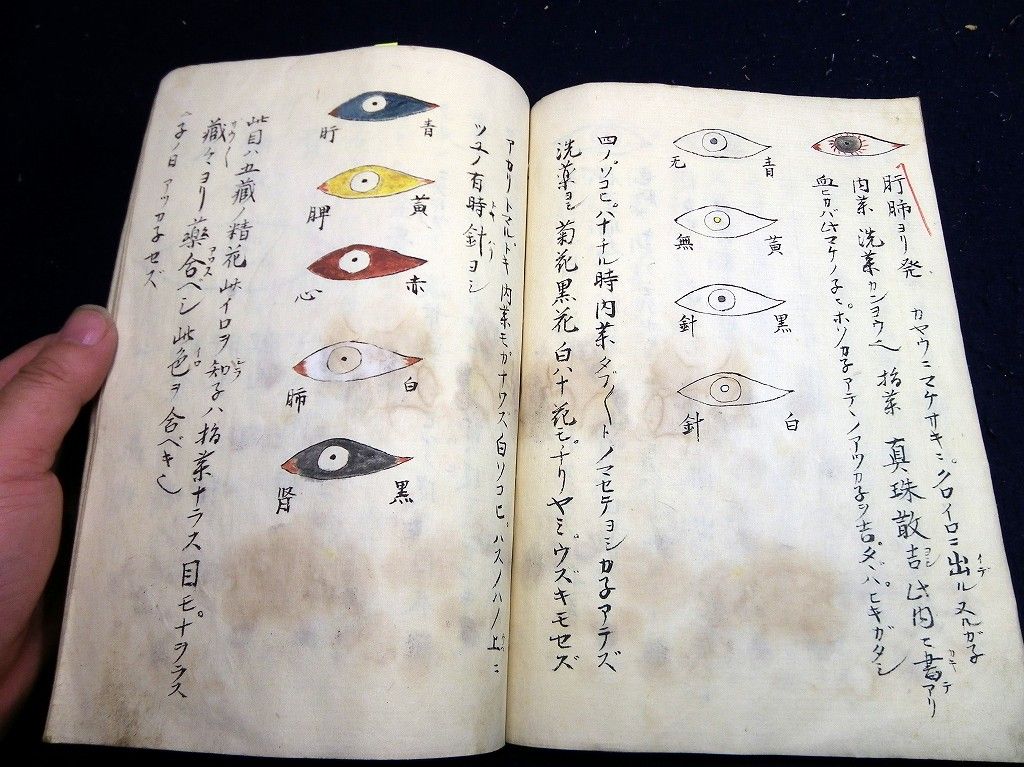 肝肺ヨリ発 カヤウニマケサキミ。クロイロニ出ル ヌルガ子
内薬 洗薬カンヨウ 指薬 真珠散吉 此内ニ書アリ
血ヒカバ此マケノ子ニ。ホソカ子アテ、ノアツカ子ヲ吉。タバヒキガタシ
青
无
黄
無
黒
針
白
針
四ノ。ソコヒ。ハ十ナル時内薬タブ〱トノマセテヨシカ子アテズ
洗薬ヨシ菊花黒花白八十花モ。ナリヤミ。ウズキモセズ
アカリトマルトキ 内薬モカナワズ白ソコヒ。ハスノハノ上ニ
ツユノ有時針ヨシ
青
肝
黄
脾
赤
心
白
肺
黒
腎
此目ハ五藏ノ精花此イロヲ知子ハ指薬ナラス目モ。ナヲラス
藏々ヨリ薬合ベシ此色ヲ合ベキ也
子ノ日アツカ子セズ